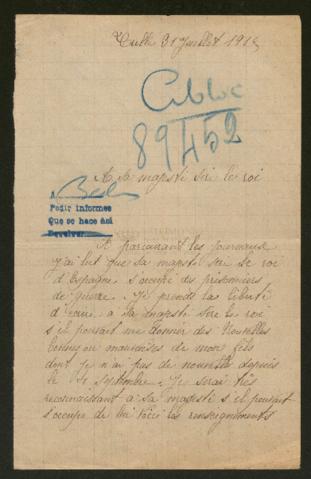 Tulle 31 Juillet 1915
89452
A Sa majesté sire le roi
A
Pedir informes
Que se hace aní
Devolver
parcourant les journaux
j'ai lut que sa majesté sire le roi
d'Espagne s'occupe des prisonniers
de guerre. Je prends la liberté
d'écrire a Sa Majesté Sire le roi
s'il pourrait me donner des Nouvelles
bonnes ou mauvaises de mon fils
dont je n'ai pas de nouvelle depuis
le Septembre. Je serai très
reconnaissant a sa majesté s'il pourrait
s'occupe de lui voici les renseignements